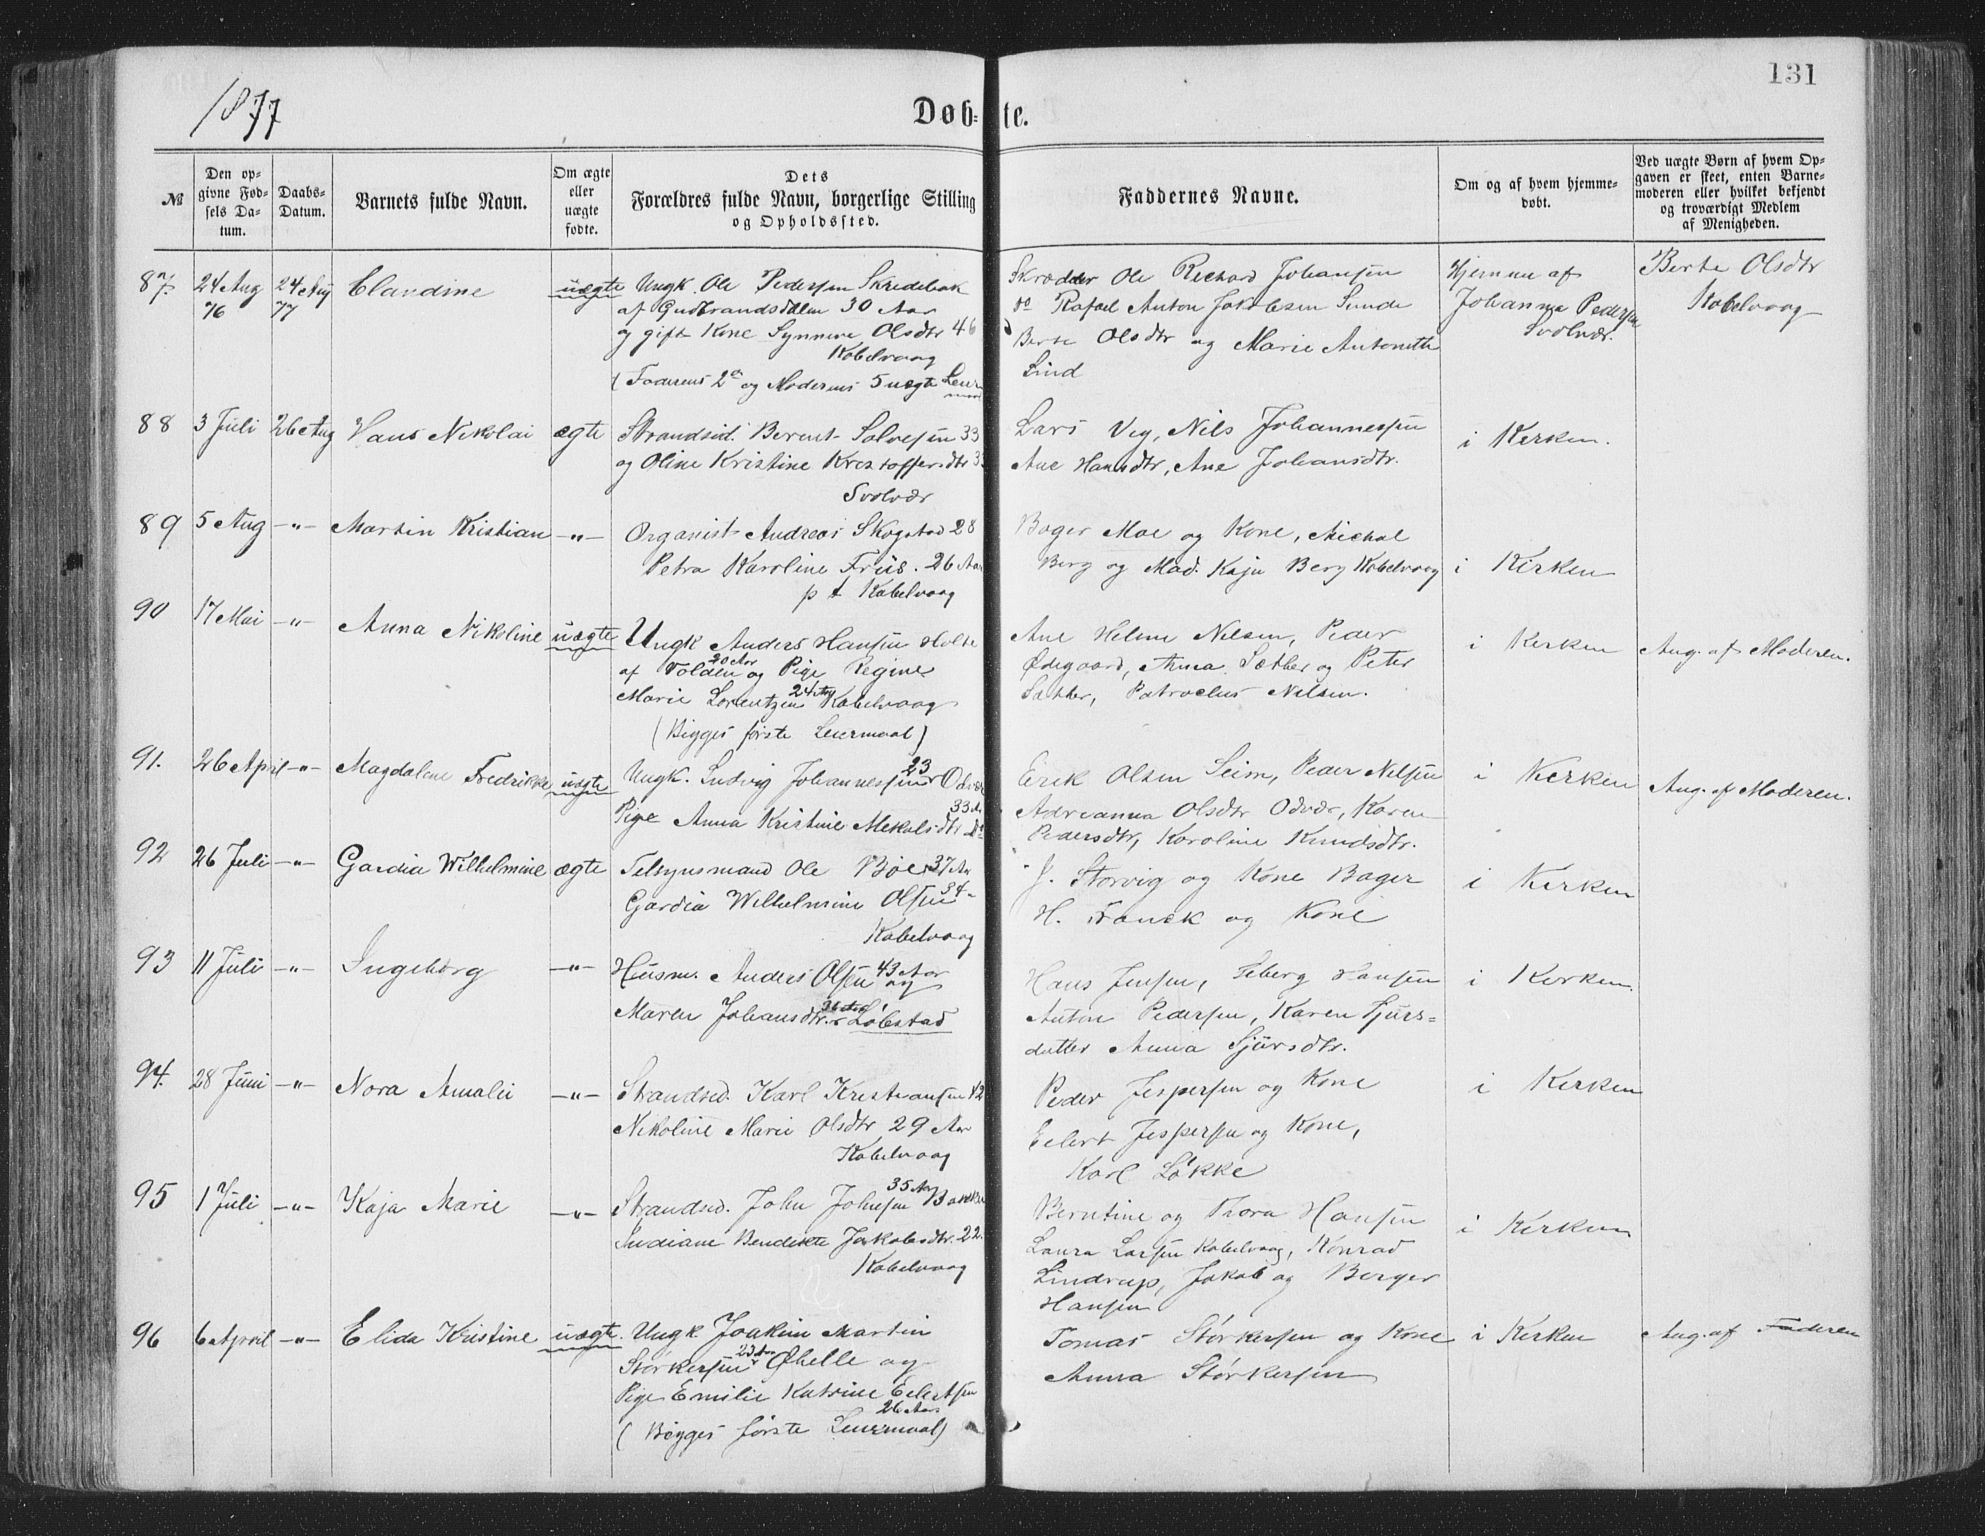 131
1877
Døb-te.
№
Den op-
givne Fød-
sels Da-
tum.
Daabs-
Datum.
Barnets fulde Navn.
Om ægte
eller
uægte
fødte.
Dets
Forældres fulde Navn, borgerlige Stilling
og Opholdssted.
Faddernes Navne.
Om og af hvem hjemme-
døbt.
Ved uægte Børn af hvem Op-
gaven er skeet, enten Barne-
moderen eller hvilket bekjendt
og troværdigt Medlem
af Menigheden.
87. 24 Aug 76 24 Aug 77 Claudine uægte
Ungk. Ole Pedersen Skredebak
af Gudbrandsdalen 30 Aar
og gift Kone Synneve Olsdtr 46
Kabelvaag
(Faderens 2det og Moderens 5 uægte Leier-
maal
Skrædder Ole Richard Johansen
do Rafael Anton Jakobsen Sunde
Berte Olsdtr og Marie Antonette
Lind
Hjemme af
Johanna Pedersen
Svolvær.
Berte Olsdtr
Kabelvaag
88 3 Juli 26 Aug Hans Nikolai ægte
Strandsid. Berent Solvesen 33
og Oline Kristine Kristoffersdtr
Svolvær
Lars Vig, Nils Johannessen
Ane Hansdtr, Ane Johansdtr.
i Kirken.
89 5 Aug -"- Martin Kristian -"-
Organist Andreas Skogstad 28
Petra Karoline Friis. 26 Aar
p t Kabelvaag
Bager Moe og Kone, Michal
Berg og Mad. Kaja Berg Kabelvaag
i Kirken
90 17 Mai -"- Anna Nikoline uægte
Ungk Anders Hansen Holte
af Folden 20 Aar og Pige Regine
Marie Lorentzen 24 Aar Kabelvaag
(Bigges første Leiermaal)
Ane Helene Nilsen, Peder
Ødegaard, Anna Sæther og Peter
Sæther, Patroclus Nilsen.
i Kirken
Ang. af Moderen.
91. 26 April -"- Magdalene Fredrikke uægte
Ungk. Ludvig Johannessen 23 Odvær
Pige Anna Kristine Mekelsdtr 33 A. do
Erik Olsen Seim, Peder Nelsen
Adrianna Olsdtr Odvær, Karen
Pedersdtr, Karoline Knudsdtr.
i Kirken
Ang. af Moderen.
92 26 Juli -"- Gardia Wilhelmine ægte
Telsynsmand Ole Bøe 37 Aar
Gardia Wilhelmine Olsen 34
Kabelvaag
J. Storvig og Kone Bager
H. Franck og Kone
i Kirken
93 11 Juli -"- Ingeborg -"-
Husm. Anders Olsen 43 Aar og
Maren Johansdtr. 36 Aar Løbstad
Hans Jensen, Seberg Hansen
Anton Pedersen, Karen Sjurs-
datter Anna Sjursdtr.
i Kirken.
94. 28 Juni -"- Nora Amalie -"-
Strandsid. Karl Kristiansen 42
Nikoline Marie Olsdtr 29 Aar
Kabelvaag
Peder Jespersen og Kone
Eilert Jespersen og Kone,
Karl Løkke
i Kirken
95 1 Juli -"- Kaja Marie -"-
Strandsid. John Johnsen 35 Aar Bakke
Indiane Bendikte Jakobsdtr. 22.
Kabelvaag
Berntine og Thora Hansen
Laura Larsen Kabelvaag, Konrad
Lindrup, Jakob og Berger
Hansen
i Kirken
96 6 April -"- Elida Kristine uægte.
Ungk Joakim Martin
Størkersen 23 Aar Ørelle og
Pige Emilie Katrine Eilertsen
26 Aar
(Begges første Leiermaal)
Tomas Størkersen og Kone
Anna Størkersen
i Kirken
Ang. af Faderen